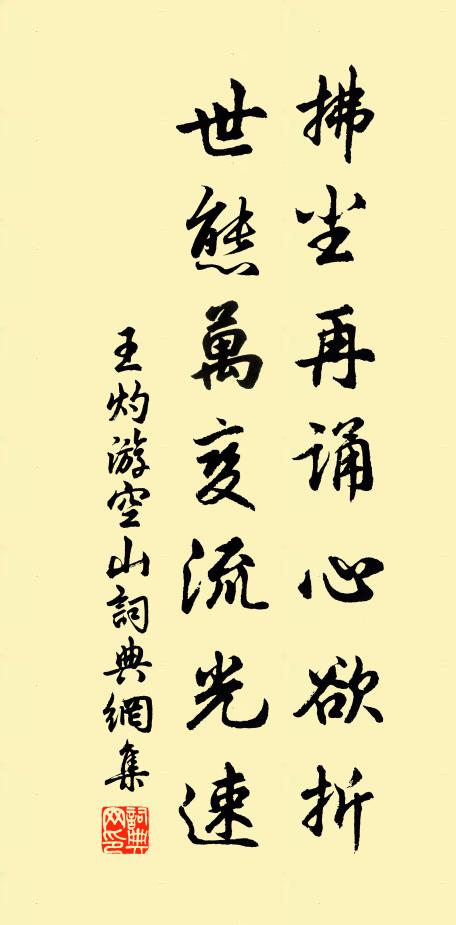 拂尘再诵心欲折
世態萬变流光速
王灼游空山詞典網集
詞典网印